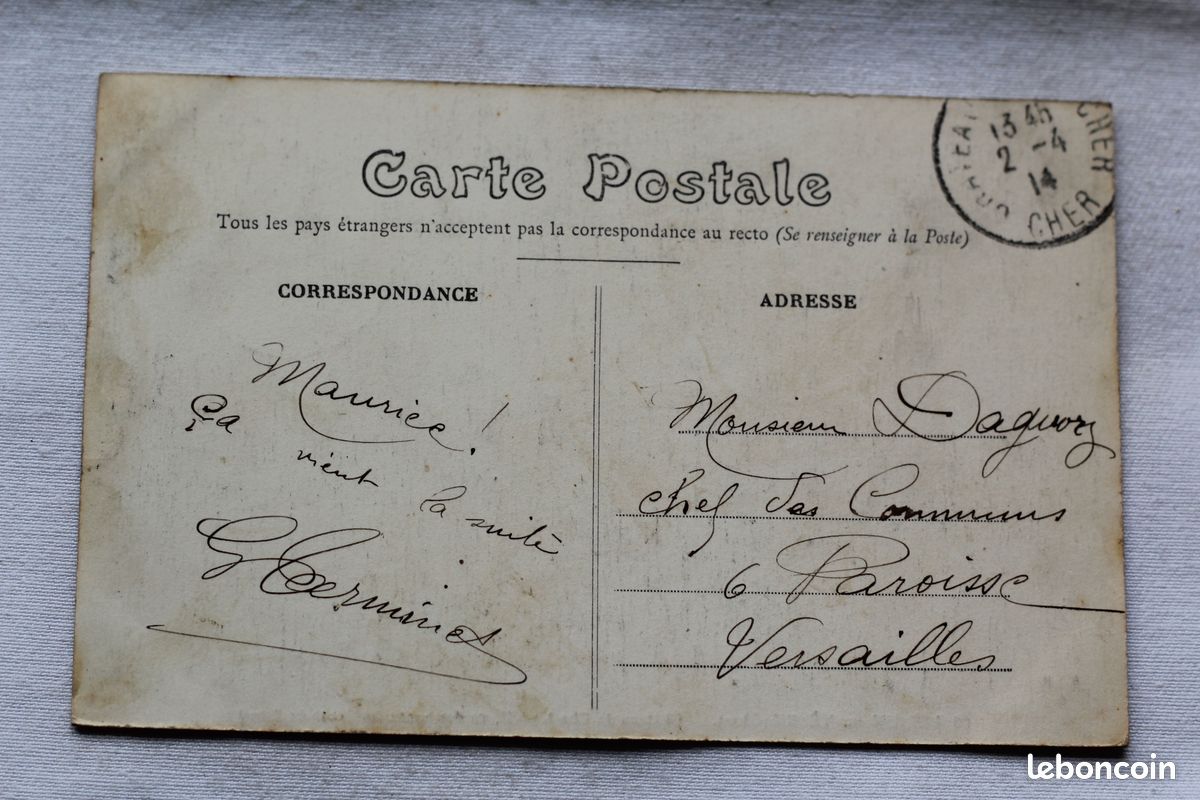 Carte Postale
Tous les pays étrangers n'acceptent pas la correspondance au recto (Se renseigner à la Poste)
CORRESPONDANCE
Maurice !
Ça
vient
la suite
ADRESSE
Monsieur
Chef des Communs
6 Paroisse
Versailles
13 45
2 - 4
14
CHER
CHER
leboncoin